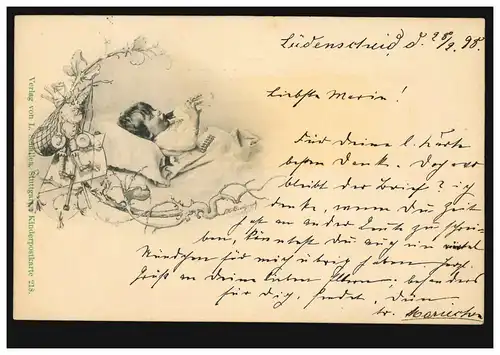 Lüdenscheid, d. 28/9. 98.
Liebste Marie!
Für Deine l. Karte
besten Dank. Doch wo
bleibt der Brief? ich
denke, wenn Du Zeit
hast an andre Leute zu schrei-
ben, könntest Du auch ein
Stündchen für mich übrig haben. Herzl.
Grüße an Deine lieben Eltern; besonders
für Dich, sendet, Dein
tr. Mariechen
Verlag von L. Stuttgart. Kinderpostkarte 218.